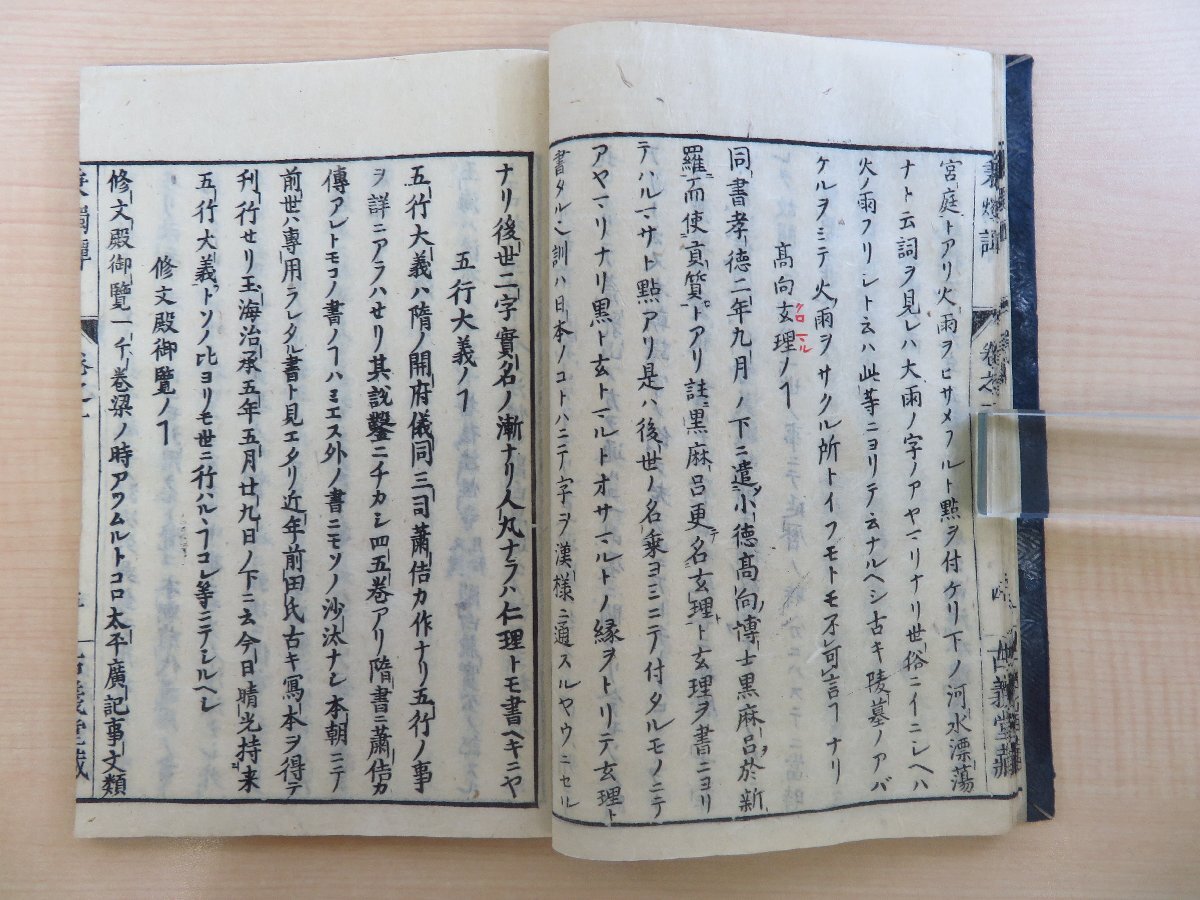 宮庭トアリ火雨ヲヒサメフルト點ヲ付ケリ下ノ河水漂蕩
ナト云詞ヲ見レハ大雨ノ字ノアヤマリナリ世俗ニイニシヘハ
火ノ雨フリシト云ハ此等ニヨリテ云ナルヘシ古キ陵墓ノアバ
ケルヲミテ火雨ヲサクル所トイフモトモ不可言ヿナリ
髙向玄理ノヿ
クロ マル
同書孝德二年九月ノ下ニ遣小德髙向博士黒麻呂於新
羅而使貢質トアリ註黒麻呂更名玄理ト玄理ヲ書ニヨリ
テハルマサト點アリ是ハ後世ノ名乗ヨミニテ付タルモノニテ
アヤマリナリ黒ト玄トマルトオサマルトノ縁ヲトリテ玄理ト
書タル也訓ハ日本ノコトハニテ字ヲ漢樣ニ通スルヤウニセル
ナリ後世二字實名ノ漸ナリ人丸ナラハ仁理トモ書ヘキニヤ
五行大義ノヿ
五行大義ハ隋ノ開府儀同三司蕭佶カ作ナリ五行ノ事
ヲ詳ニアラハセリ其説鑿ニチカシ四五巻アリ隋書ニ蕭佶カ
傳アレトモコノ書ノヿハミエス外ノ書ニモソノ沙汰ナシ本朝ニテ
前世ハ專用ラレタル書ト見エタリ近年前田氏古キ寫本ヲ得テ
刊行セリ玉海治承五年五月廿九日ノ下ニ云今日晴光持来
五行大義トソノ比ヨリモ世ニ行ハルヽヿコレ等ニテシルヘシ
修文殿御覽ノヿ
修文殿御覽一千巻梁ノ時アツムルトコロ太平廣記事文類